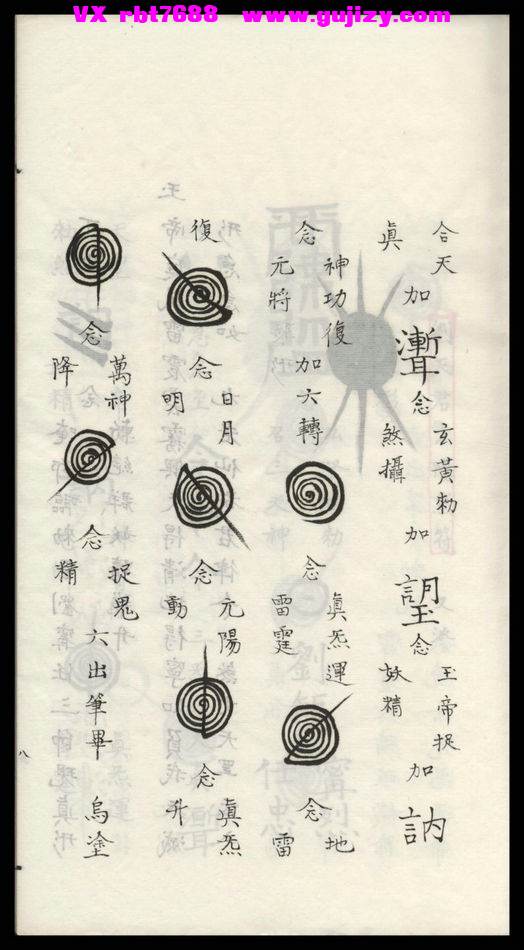 VX rbt7688 www.gujizy.com
合天眞加念玄黃勑煞攝加念玉帝捉妖精加訥
念神功復元將加六轉念眞炁運雷霆念地雷
復念日月明念元陽動念眞炁升
念萬神降念捉鬼精六出筆畢烏塗
八